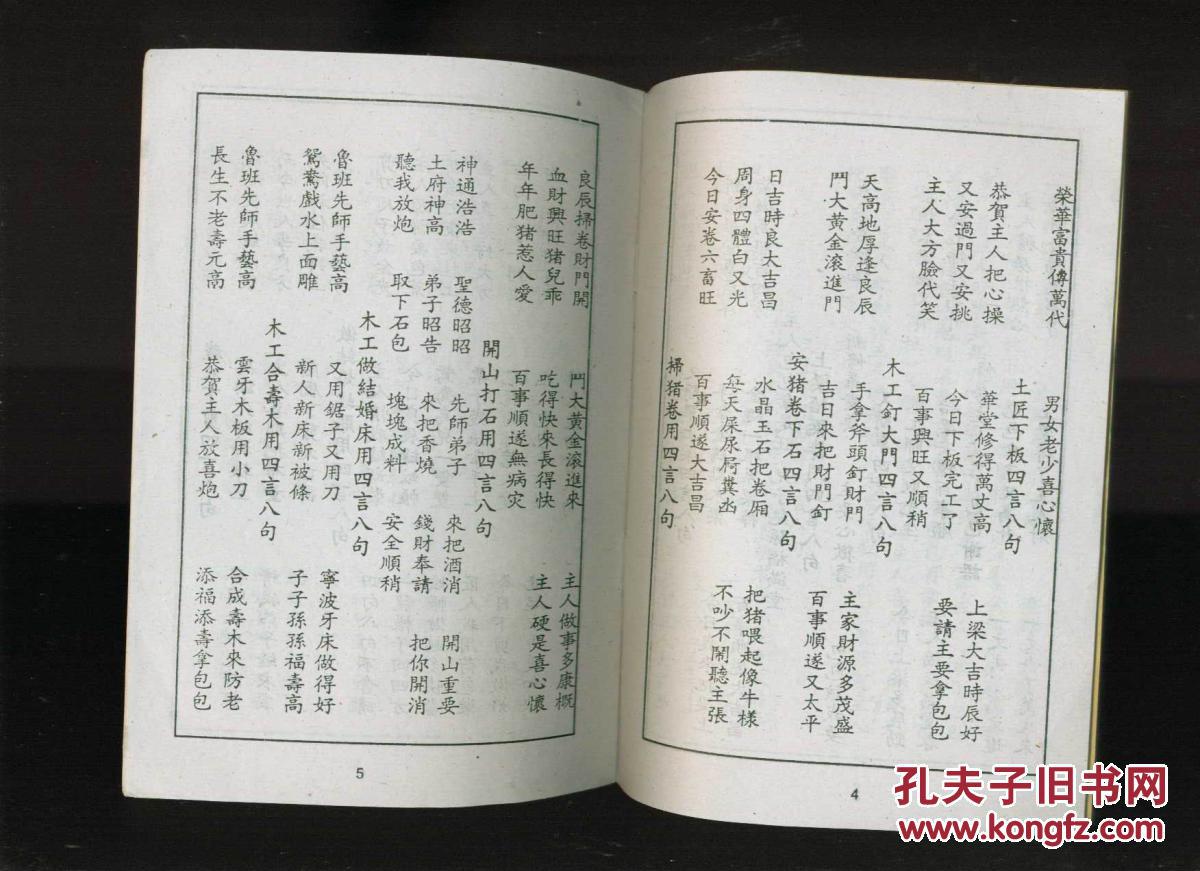 榮華富貴傳萬代 男女老少喜心懷
土匠下板四言八句
恭賀主人把心操 華堂修得萬丈高 上梁大吉時辰好
又安過門又安挑 今日下板完工了 要請主要拿包包
主人大方臉代笑 百事興旺又順稍
木工釘大門四言八句
天高地厚逢良辰 手拿斧頭釘財門 主家財源多茂盛
鬥大黄金滚進門 吉日來把財門釘 百事順遂又太平
安猪卷下石四言八句
日吉時良大吉昌 水晶玉石把卷厢 把猪喂起像牛樣
周身四體白又光 每天屎尿屙糞凼 不吵不鬧聽主張
今日安卷六畜旺 百事順遂大吉昌
掃猪卷用四言八句
4
良辰掃卷財門開 鬥大黄金滚進來 主人做事多康概
血財興旺猪兒乖 吃得快來長得快 主人硬是喜心懷
年年肥猪惹人愛 百事順遂無病灾
開山打石用四言八句
神通浩浩 聖德昭昭 先師弟子 來把酒消 開山重要
土府神高 弟子昭告 來把香燒 錢財奉請 把你開消
聽我放炮 取下石包 塊塊成料 安全順稍
木工做結婚床用四言八句
魯班先師手藝高 又用鋸子又用刀 寧波牙床做得好
鴛鴦戲水上面雕 新人新床新被條 子子孫孫福壽高
木工合壽木用四言八句
魯班先師手藝高 雲牙木板用小刀 合成壽木來防老
長生不老壽元高 恭賀主人放喜炮 添福添壽拿包包
5
孔夫子旧书网
www.kongfz.com